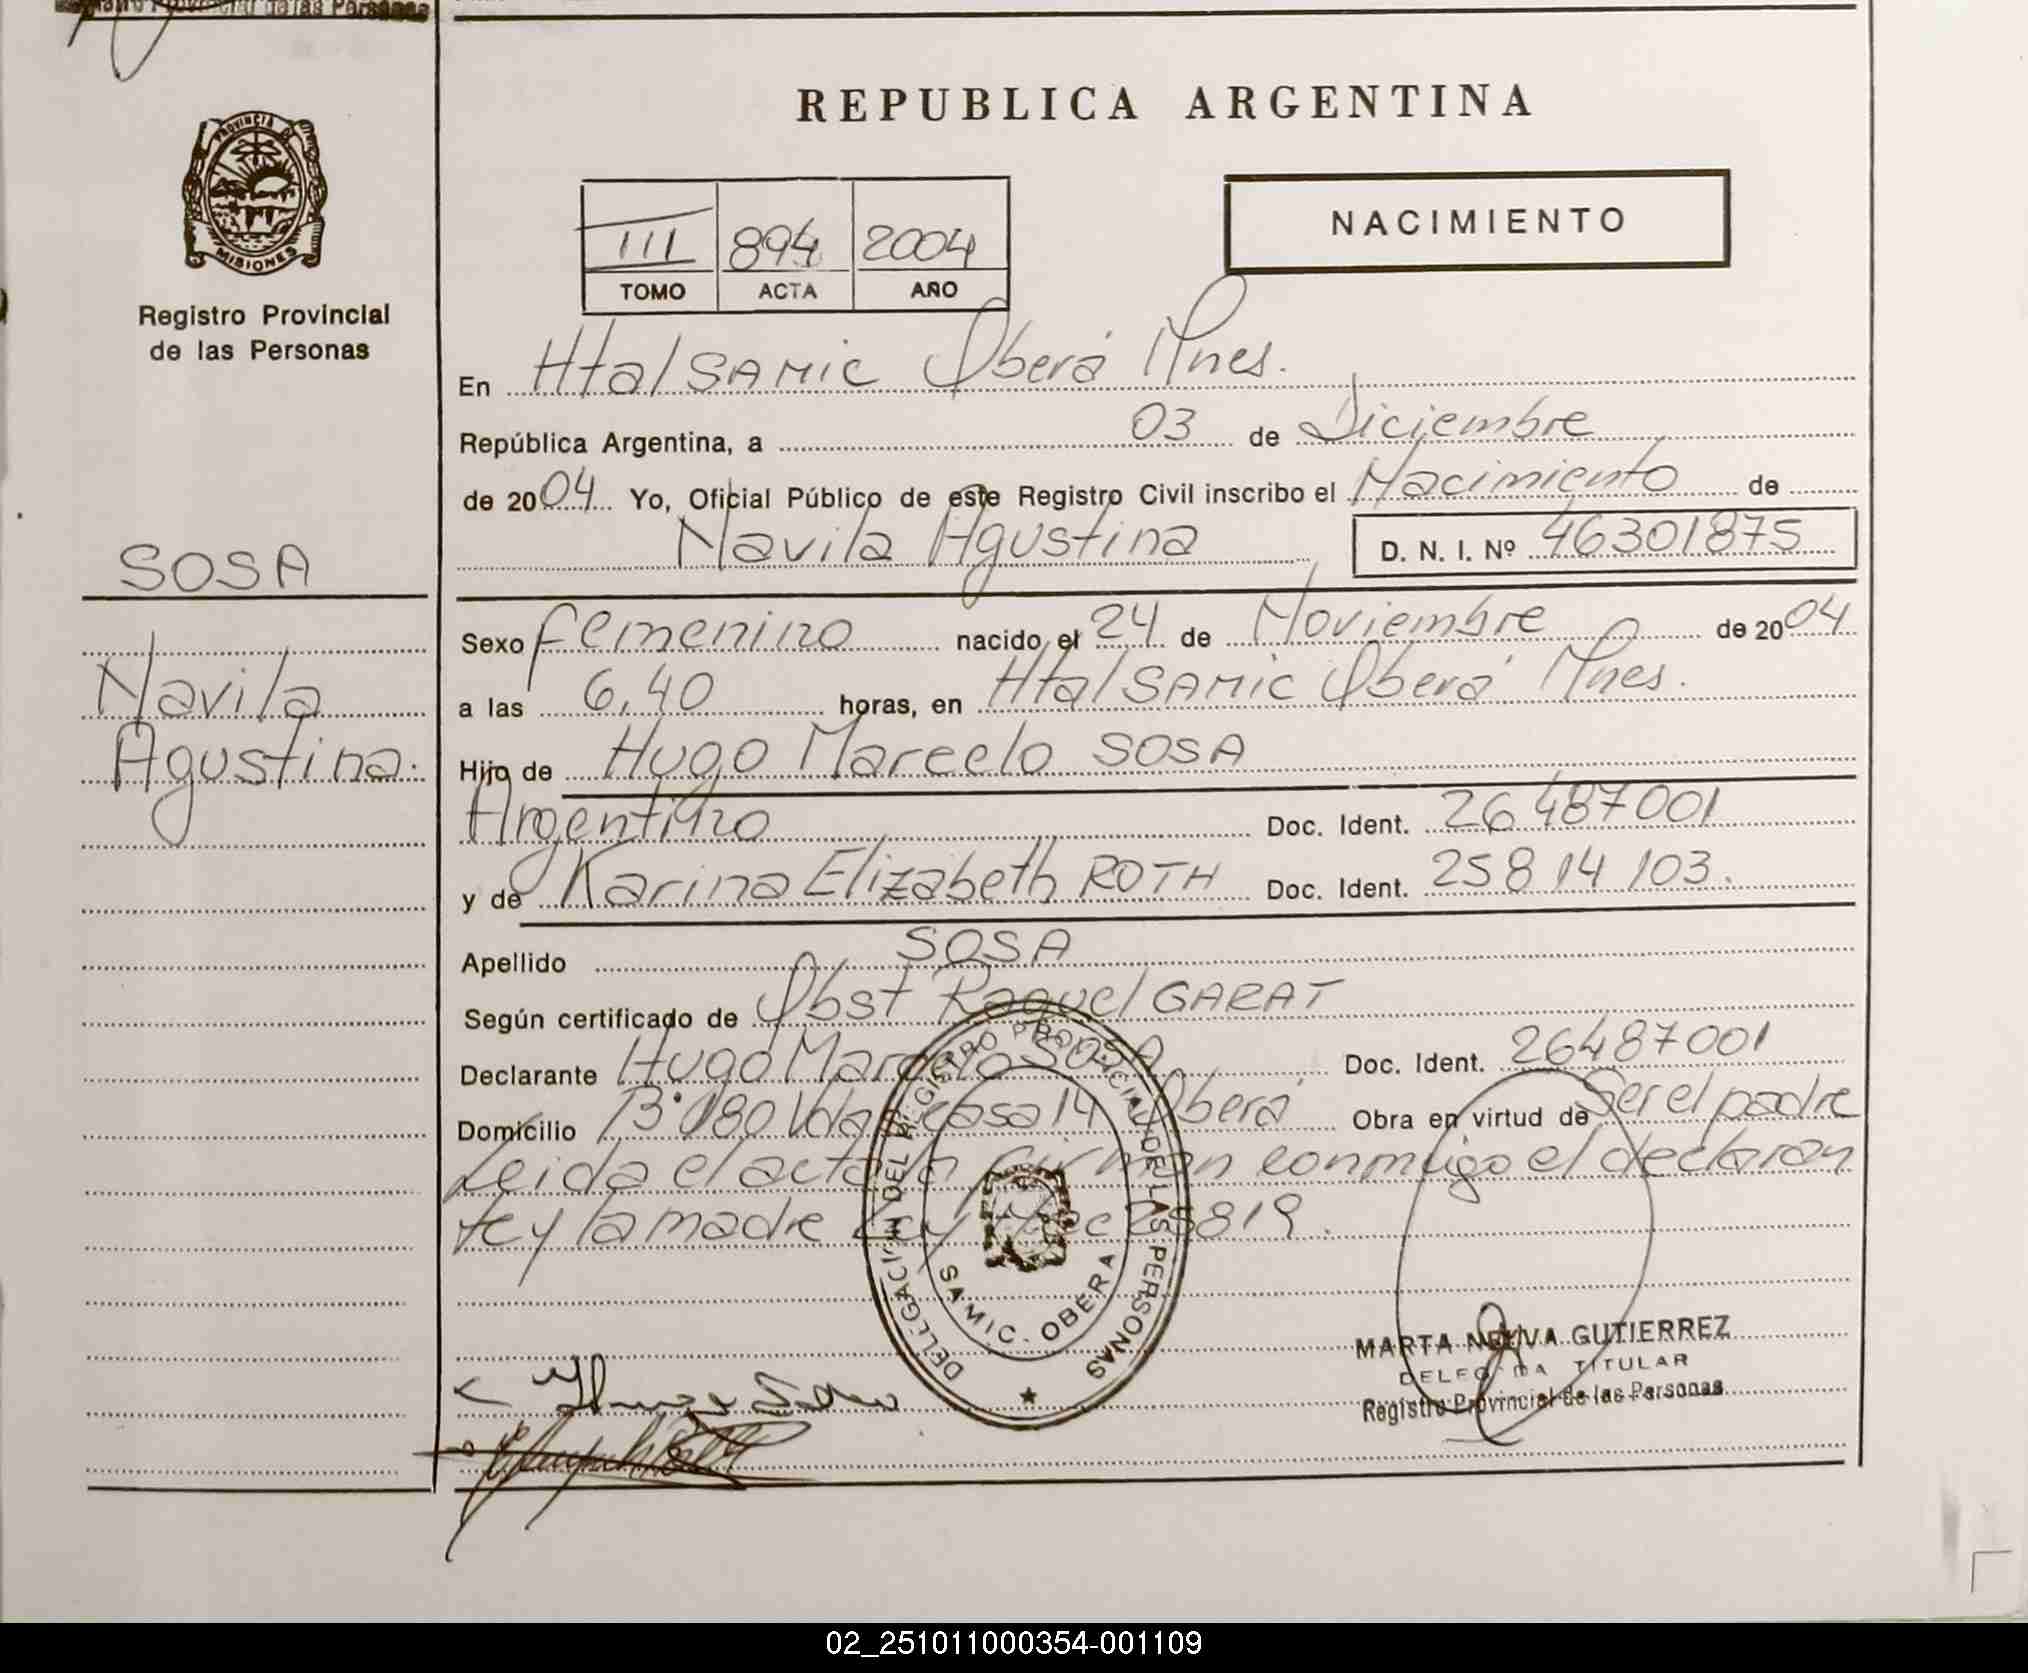 Registro Provincial de las Personas
PROVINCIA DE
MISIONES
Registro Provincial
de las Personas
SOSA
Navila
Agustina.
REPUBLICA ARGENTINA
III 894 2004
TOMO ACTA AÑO
NACIMIENTO
En Htal SAMIC Oberá Mnes.
República Argentina, a 03 de Diciembre
de 2004 Yo, Oficial Público de este Registro Civil inscribo el Nacimiento de
Navila Agustina D. N. I. Nº 46301875
Sexo femenino nacido el 24 de Noviembre de 2004
a las 6,40 horas, en Htal SAMIC Oberá Mnes.
Hijo de Hugo Marcelo SOSA
Argentino Doc. Ident. 26487001
y de Karina Elizabeth ROTH Doc. Ident. 25814103.
Apellido SOSA
Según certificado de Obst Raquel GARAT
Declarante Hugo Marcelo SOSA Doc. Ident. 26487001
Domicilio B° 180 casa 14 Oberá Obra en virtud de Ser el padre
Leida el acta la firman conmigo el declaran
te y la madre Ley 25819.
DELEGACION DEL REGISTRO PROVINCIAL DE LAS PERSONAS
SAMIC - OBERA
MARTA NELVA GUTIERREZ
DELEGADA TITULAR
Registro Provincial de las Personas
02_251011000354-001109